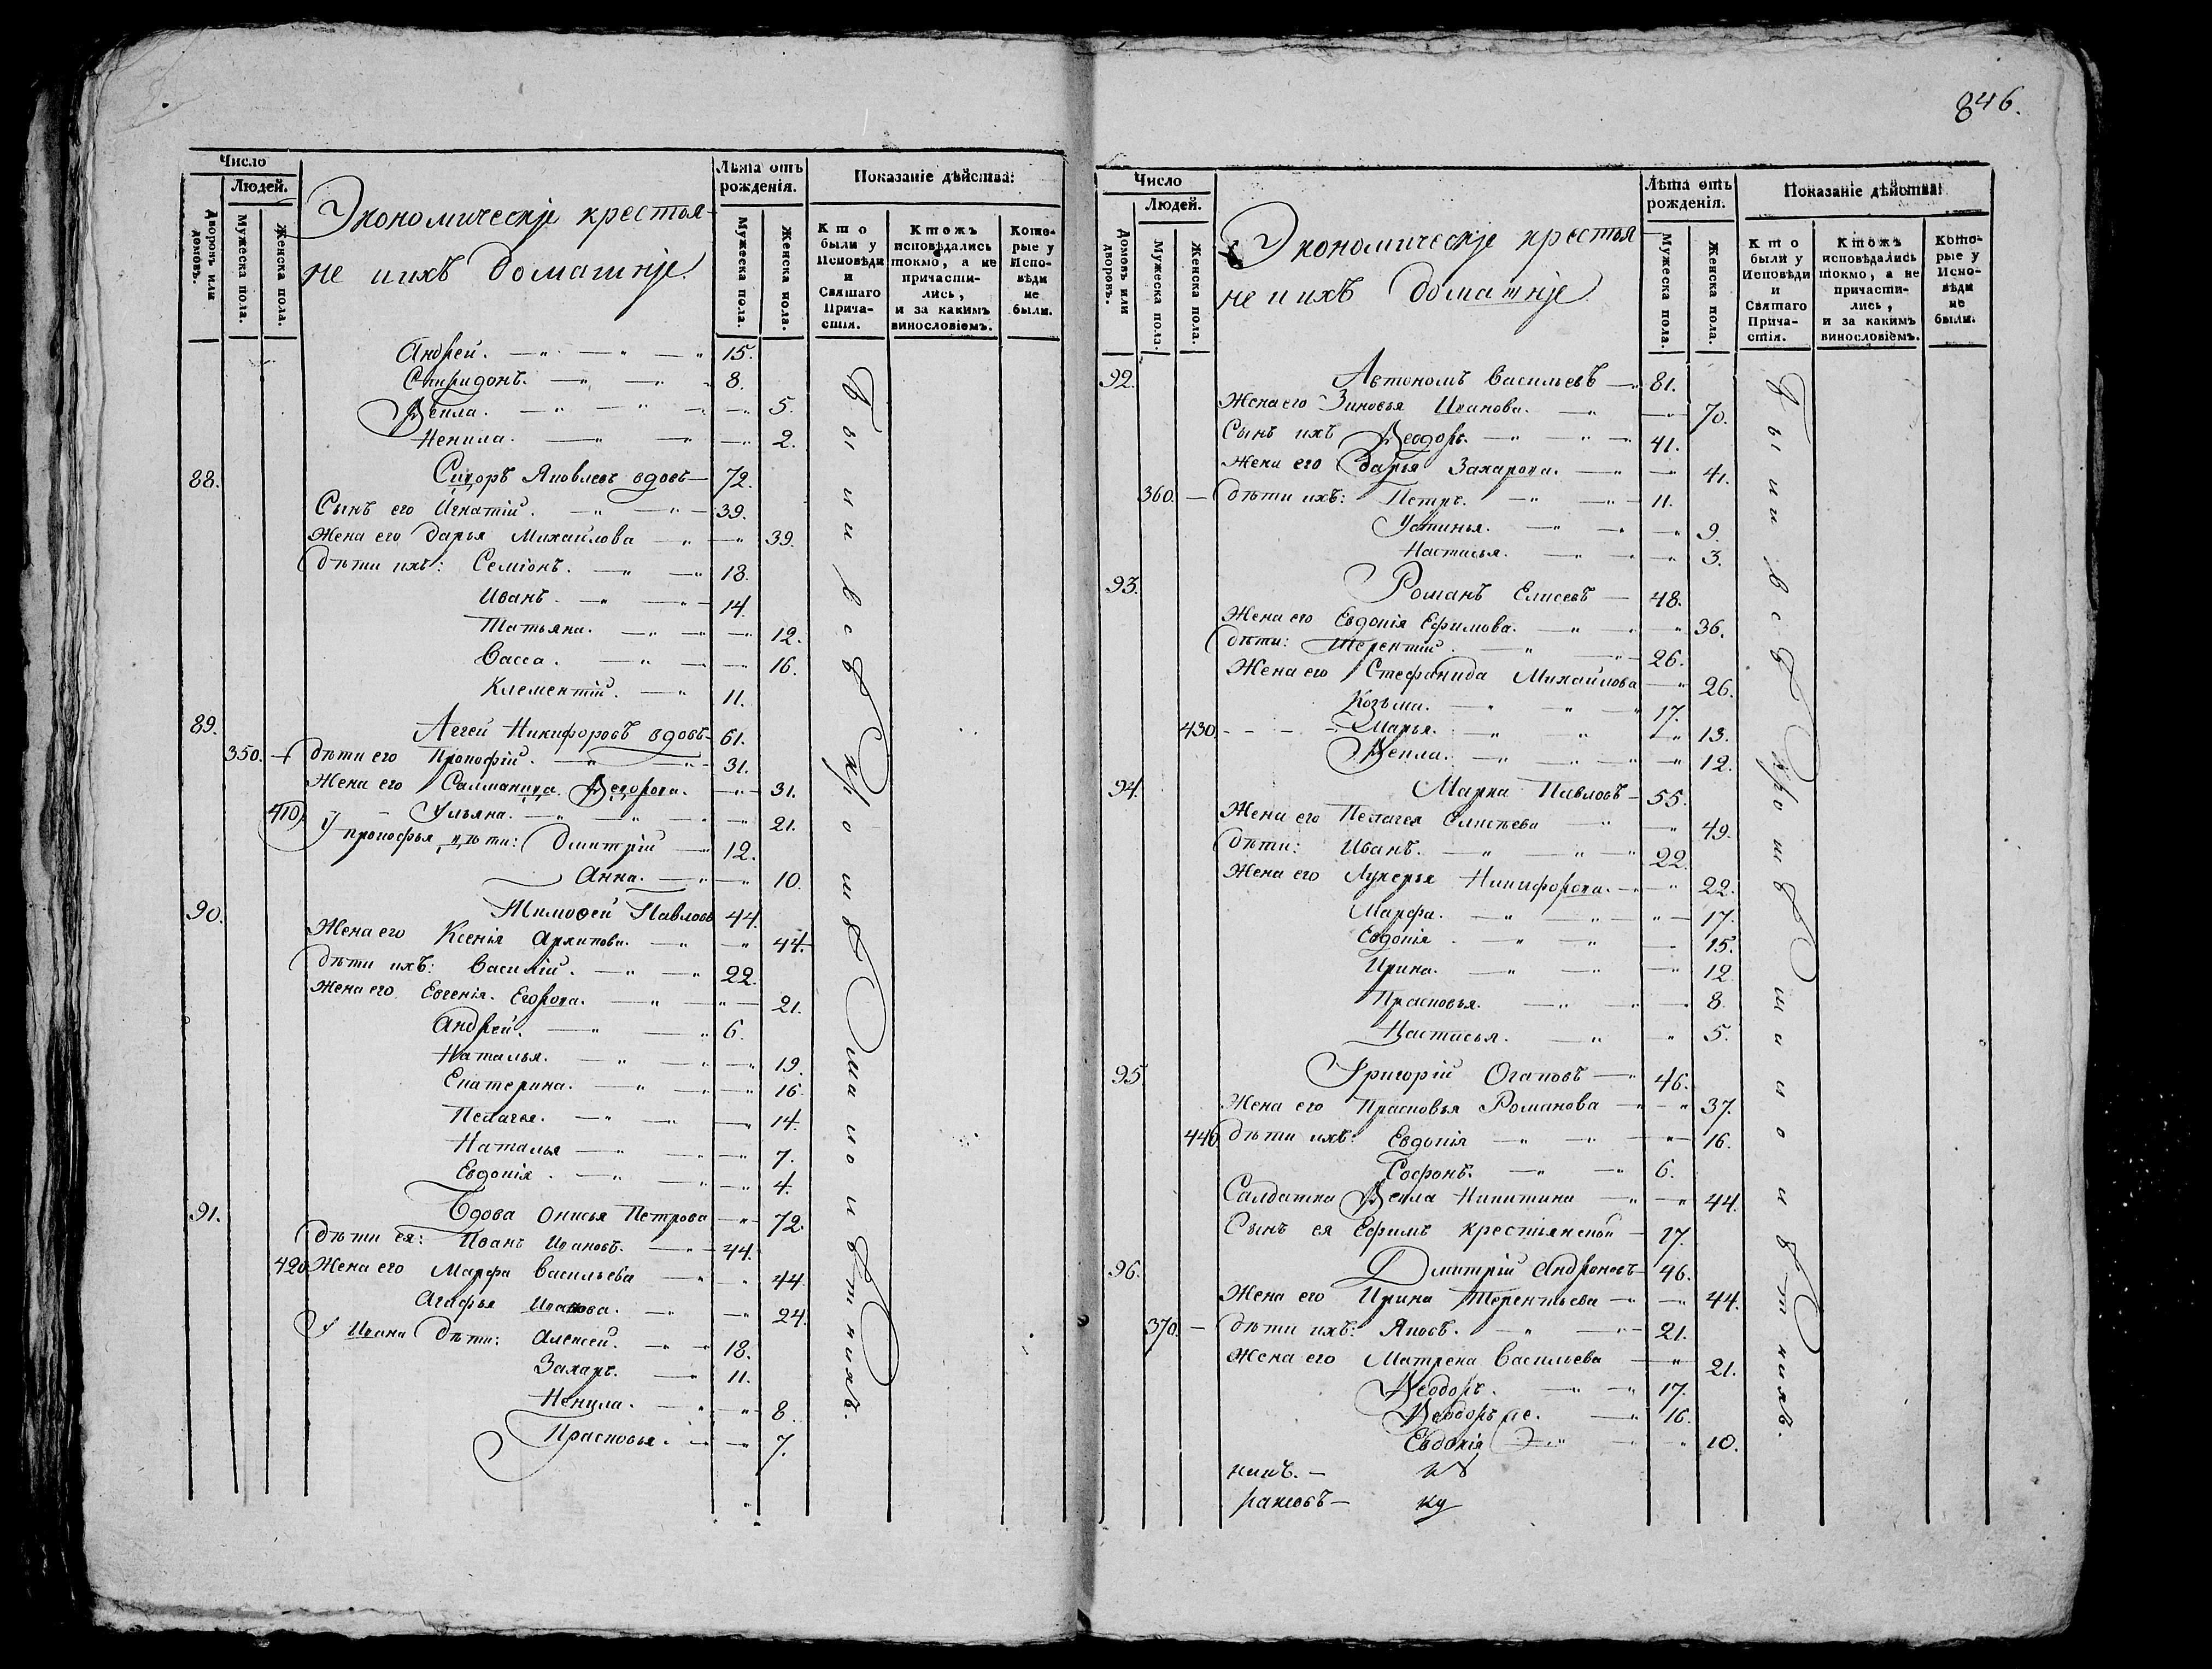 846.
Число
Людей.
Дворовъ или домовъ.
Мужеска пола.
Женска пола.
Экономическіе крестья-
не и ихъ домашніе
Лѣта отъ рожденія.
Мужеска пола.
Женска пола.
Показаніе дѣйства:
Кто были у Исповѣди и Святаго Причастія.
Ктожъ исповѣдались токмо, а не причастились, и за какимъ винословіемъ.
Которые у Исповѣди не были.
Андрей. 15.
Спиридонъ. 8.
Ѳекла. 5.
Ненила. 2.
88. Сидоръ Яковлевъ вдовъ 72.
Сынъ его Игнатій. 39.
Жена его Дарья Михайлова 39.
Дѣти ихъ: Семіонъ. 18.
Иванъ. 14.
Татьяна. 12.
Васса. 16.
Клементій. 11.
89. Агей Никифоровъ вдовъ 61.
350. Дѣти его Прокофій. 31.
Жена его Саламанида Ѳедорова. 31.
410 Ульяна. 21.
У Прокофья дѣти: Дмитрій 12.
Анна. 10.
90. Тимоѳей Павловъ 44.
Жена его Ксенія Архипова. 44.
Дѣти ихъ: Василій. 22.
Жена его Евгенія Егорова. 21.
Андрей. 6.
Наталья. 19.
Екатерина. 16.
Пелагея. 14.
Наталья 7.
Евдокія. 4.
91. Вдова Онисья Петрова 72.
Дѣти ея: Иванъ Ивановъ. 44.
420 Жена его Марфа Васильева 44.
Агафья Иванова. 24.
У Ивана дѣти: Алексей. 18.
Захаръ. 11.
Ненила. 8.
Прасковья. 7.
Были всѣ
Число
Людей.
Домовъ или дворовъ.
Мужеска пола.
Женска пола.
Экономическіе крестья
не и ихъ домашніе
Лѣта отъ рожденія.
Мужеска пола.
Женска пола.
Показаніе дѣйства:
Кто были у Исповѣди и Святаго Причастія.
Ктожъ исповѣдались токмо, а не причастились, и за какимъ винословіемъ.
Которые у Исповѣди не были.
92. Автономъ Васильевъ 81.
Жена его Зиновья Иванова. 70.
Сынъ ихъ Ѳеодоръ. 41.
Жена его Дарья Захарова. 41.
360. Дѣти ихъ: Петръ. 11.
Устинья. 9.
Настасья. 3.
93. Романъ Елисеевъ 48.
Жена его Евдокія Ефимова. 36.
Дѣти: Терентій. 26.
Жена его Стефанида Михайлова 26.
Козьма. 17.
430. Марья. 13.
Ѳекла. 12.
94. Марка Павловъ 55.
Жена его Пелагея Елисѣева 49.
Дѣти: Иванъ. 22.
Жена его Лукерья Никифорова. 22.
Марфа. 17.
Евдокія. 15.
Ирина. 12
Прасковья. 8.
Настасья. 5.
95. Григорій Огаповъ 46.
Жена его Прасковья Романова 37.
440 Дѣти ихъ: Евдокія 16.
Софонъ. 6.
Салдатка Ѳекла Никитина 44.
Сынъ ея Ефимъ крестіянской 17.
96. Дмитрій Андроновъ 46.
Жена его Ирина Терентьева 44.
370. Дѣти ихъ: Яковъ. 21.
Жена его Матрена Васильева 21.
Ѳеодоръ. 17.
Ѳеодоръ же. 16.
Евдокія 10.
Были всѣ